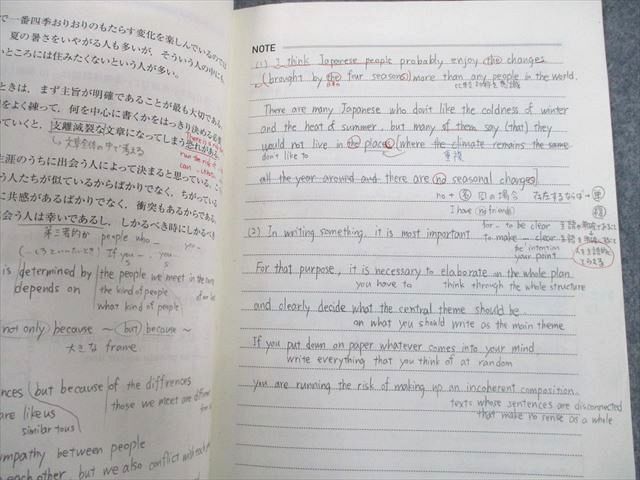 で一番四季おりおりのもたらす変化を楽しんでいるので
夏の暑さをいやがる人も多いが、そういう人の中にも
ところには住みたくないという人が多い。
ときは、まず主旨が明確であることが最も大切である。
をよく練って、何を中心に書くかをはっきり決める必要
ていくと、支離滅裂な文章になってしまう恐れがある。
文章全体の中で考える
run the risk of
生涯のうちに出会う人によって決まると思っている。こ
う人たちが似ているからばかりでなく、ちがっている
に共感があるばかりでなく、衝突もあるからである。
会う人は幸いであるし、しかるべき時にしかるべき
第三者的か people who
If you
is determined by the people we meet in
depends on the kind of people
what kind of people
not only because ~ but because ~
大きな frame
nces but because of the differences
are like us those we meet are
similar to us
mpathy between people
each other, but we also conflict with each
NOTE
(1) I think Japanese people probably enjoy the changes
(brought by the four seasons) more than any people in the world.
There are many Japanese who don't like the coldness of winter
and the heat of summer, but many of them say (that) they
would not live in the places (where the climate remains the same
don't like to 重複
all the year around and there are no seasonal changes).
no + 名 の場合 存在するならば 単
I have no friends 複
(2) In writing something, it is most important to make
for - to be clear
the intention
your point
For that purpose, it is necessary to elaborate on the whole plan
you have to think through the whole structure
and clearly decide what the central theme should be.
on what you should write as the main theme
If you put down on paper whatever comes into your mind,
write everything that you think of at random
you are running the risk of making up an incoherent composition.
texts whose sentences are disconnected
that make no sense as a whole